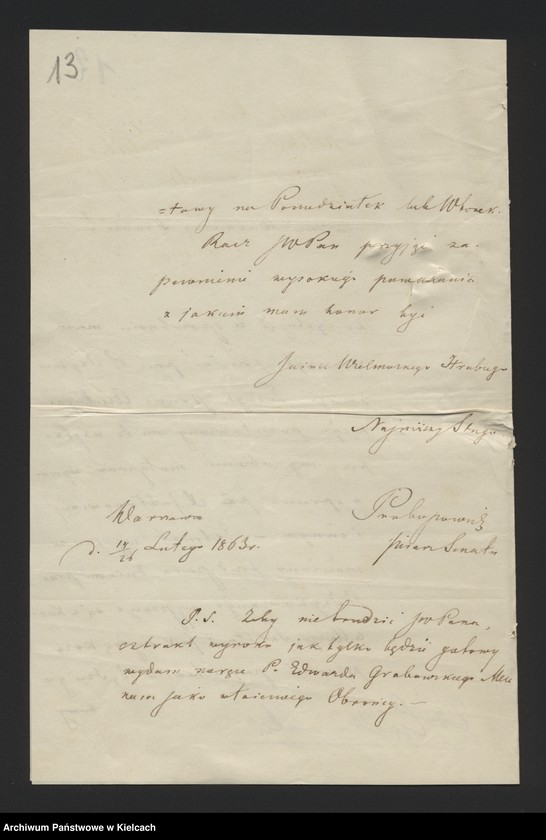 13
=towy na Poniedziałek lub Wtorek.
Racz JWPan przyjąć za-
pewnienie wysokiego poważania
z jakiem mam honor być
Jaśnie Wielmożnego Hrabiego
Najniższy Sługa
Prokopowicz
Pisarz Senatu
Warszawa
d. 14/26 Lutego 1863 r.
P.S. Żeby nie trudzić JWPana,
extrakt wyroku jak tylko będzie gotowy
wydam na ręce P. Edwarda Grabowskiego Mece
nasa jako właściwego Obrońcy. —
Archiwum Państwowe w Kielcach